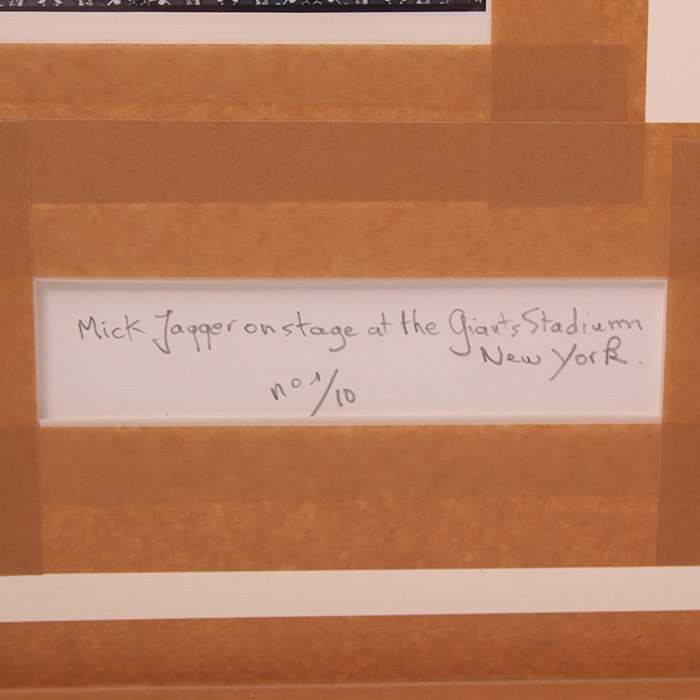 Mick Jagger on stage at the Giants Stadium
New York.
no 1/10